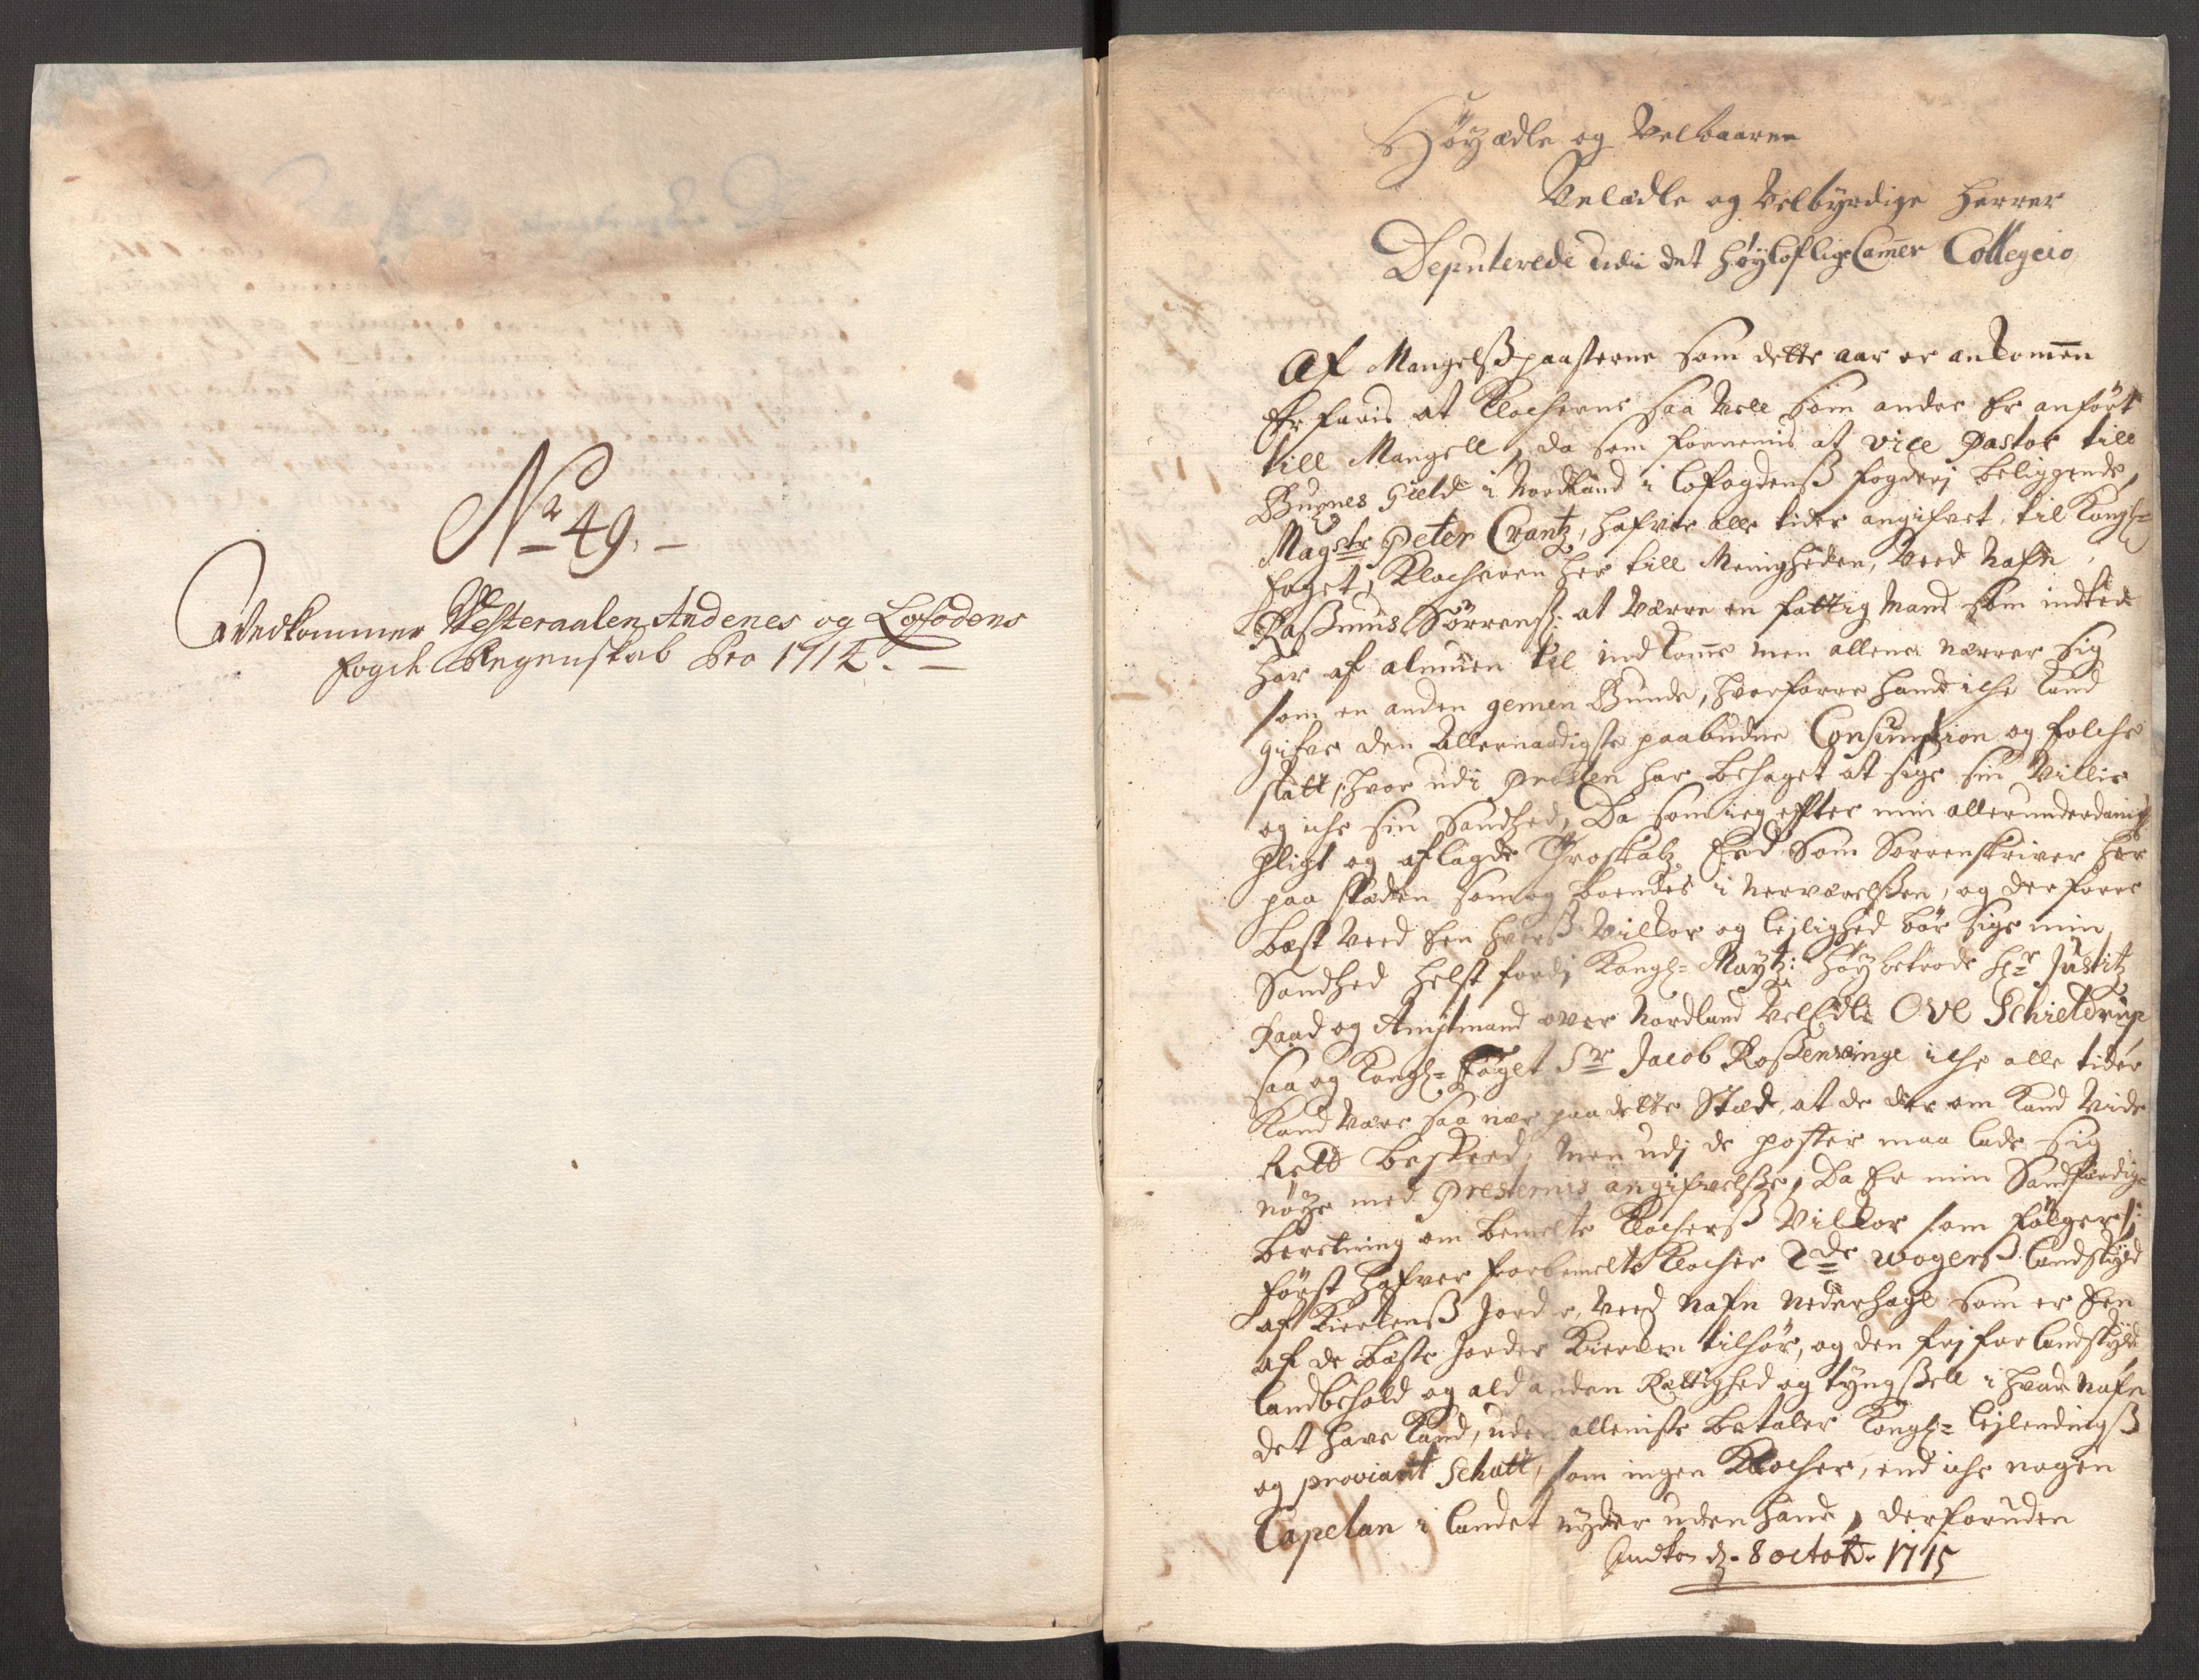 No 49.
Vedkommer Westeraalen Andenes og Lofodens
fogd. Regenskab Pro 1714.
Høyædle og Velbaarne
Velædle og Velbyrdige Herrer
Deputerede udi det høyloflige Camer Collegeio
Af Mangelsposterne som dette aar er ankomen
Erfaris at Klocherne saa Vell som andre Er anført
till Mangell, da som fornemis at vice Pastor till
Buxnes Gield i Nordland i Lofogdenß fogderj beliggende,
Magstr Peter Crantz, hafver alle tider angifvet til Kongl=
foget, Klocheren her till Menigheden, Ved Nafn
Raßmus Sørrenß: at Være en fattig Mand som intet
har af almuen til indkome men allene nærrer sig
som en anden gemen Bunde, hvorforre hand iche kand
gifve den Allernaadigste paabudne Consumption og folche
skatt, hvor udi Presten har behaget at sige sin Villie
og iche sin Sandhed, Da som ieg effter min allerunderdanig
pligt og aflagde Troskabz Eed Som Sorrenskriver her
paa stæden som og boendes i nerværelßen, og derforre
best Veed een hverß Vilkor og leylighed bør sige min
Sandhed helst fordj Kongl= Maytz: høybetrode Hr Justitz
Raad og Amptmand over Nordland VelEdle Ove Schieldrup
saa og Kongl= foget Sr Jacob Roßenvinge iche alle tider
kand være saa nær paa dette Sted, at de der om kand Vide
Rett beskeed, men udj de poster maa lade sig
nøye med Presternis angifvelße, Da Er min Sandferdig=
beretning om bemelte Klocherß Vilkor som følger:
først hafver forbemelte Klocher 2de wogerß landskyld
af Kierkenß Jorder, Ved Nafn Nederhage som er Een
af de beste Jorder Kierken tilhør, og den frj for landskyld
landbehold og ald anden Rettighed og tyngßell i hvad Nafn
det have kand, uden alleniste betaler Kongl= leylendingß
og proviant Schatt, som ingen Klocher, end iche nogen
Capelan i landet nyder uden hand, derforuden
Indkom d. 8 octob. 1715